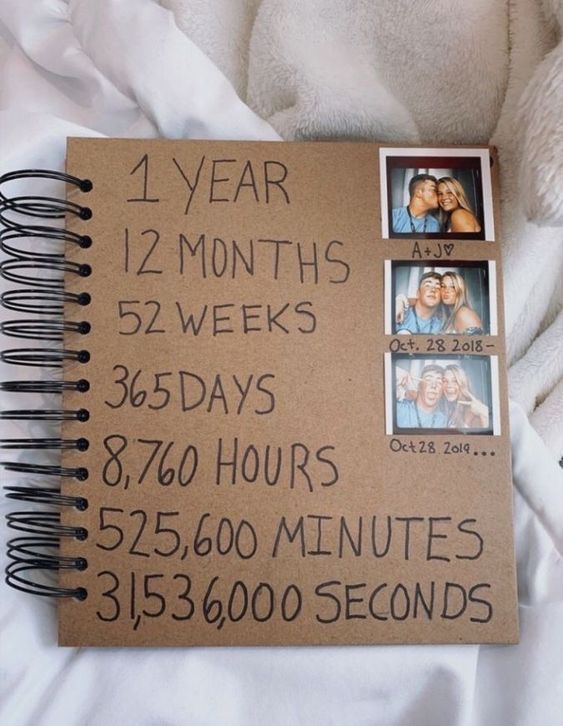 1 YEAR
12 MONTHS
52 WEEKS
365 DAYS
8,760 HOURS
525,600 MINUTES
31,536,000 SECONDS
A+J♡
Oct. 28 2018-
Oct 28 2019...